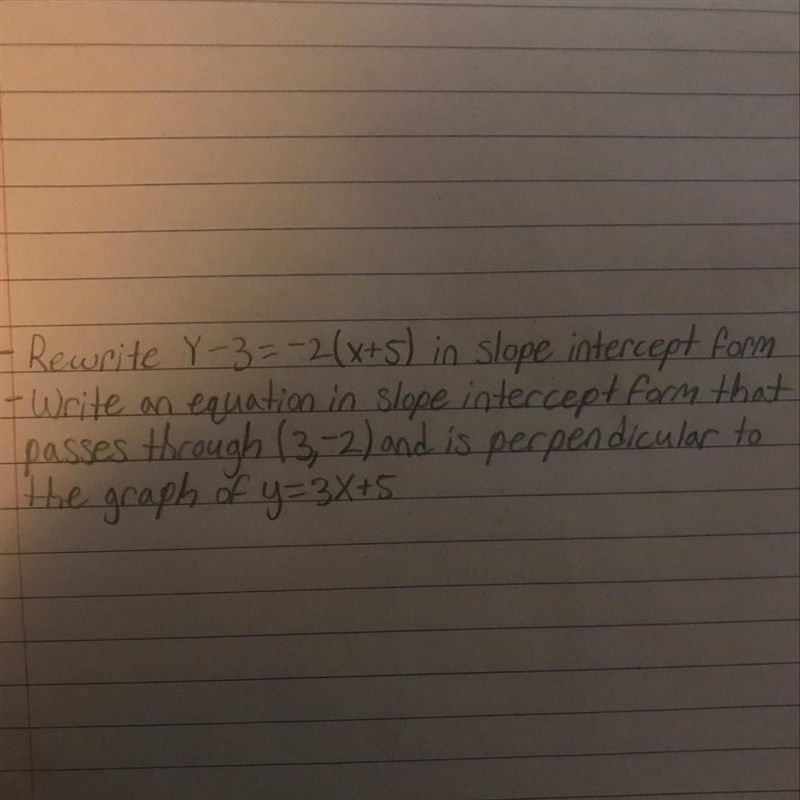 - Rewrite Y-3=-2(x+5) in slope intercept form
- Write an equation in slope intercept form that
passes through (3,-2) and is perpendicular to
the graph of y=3x+5